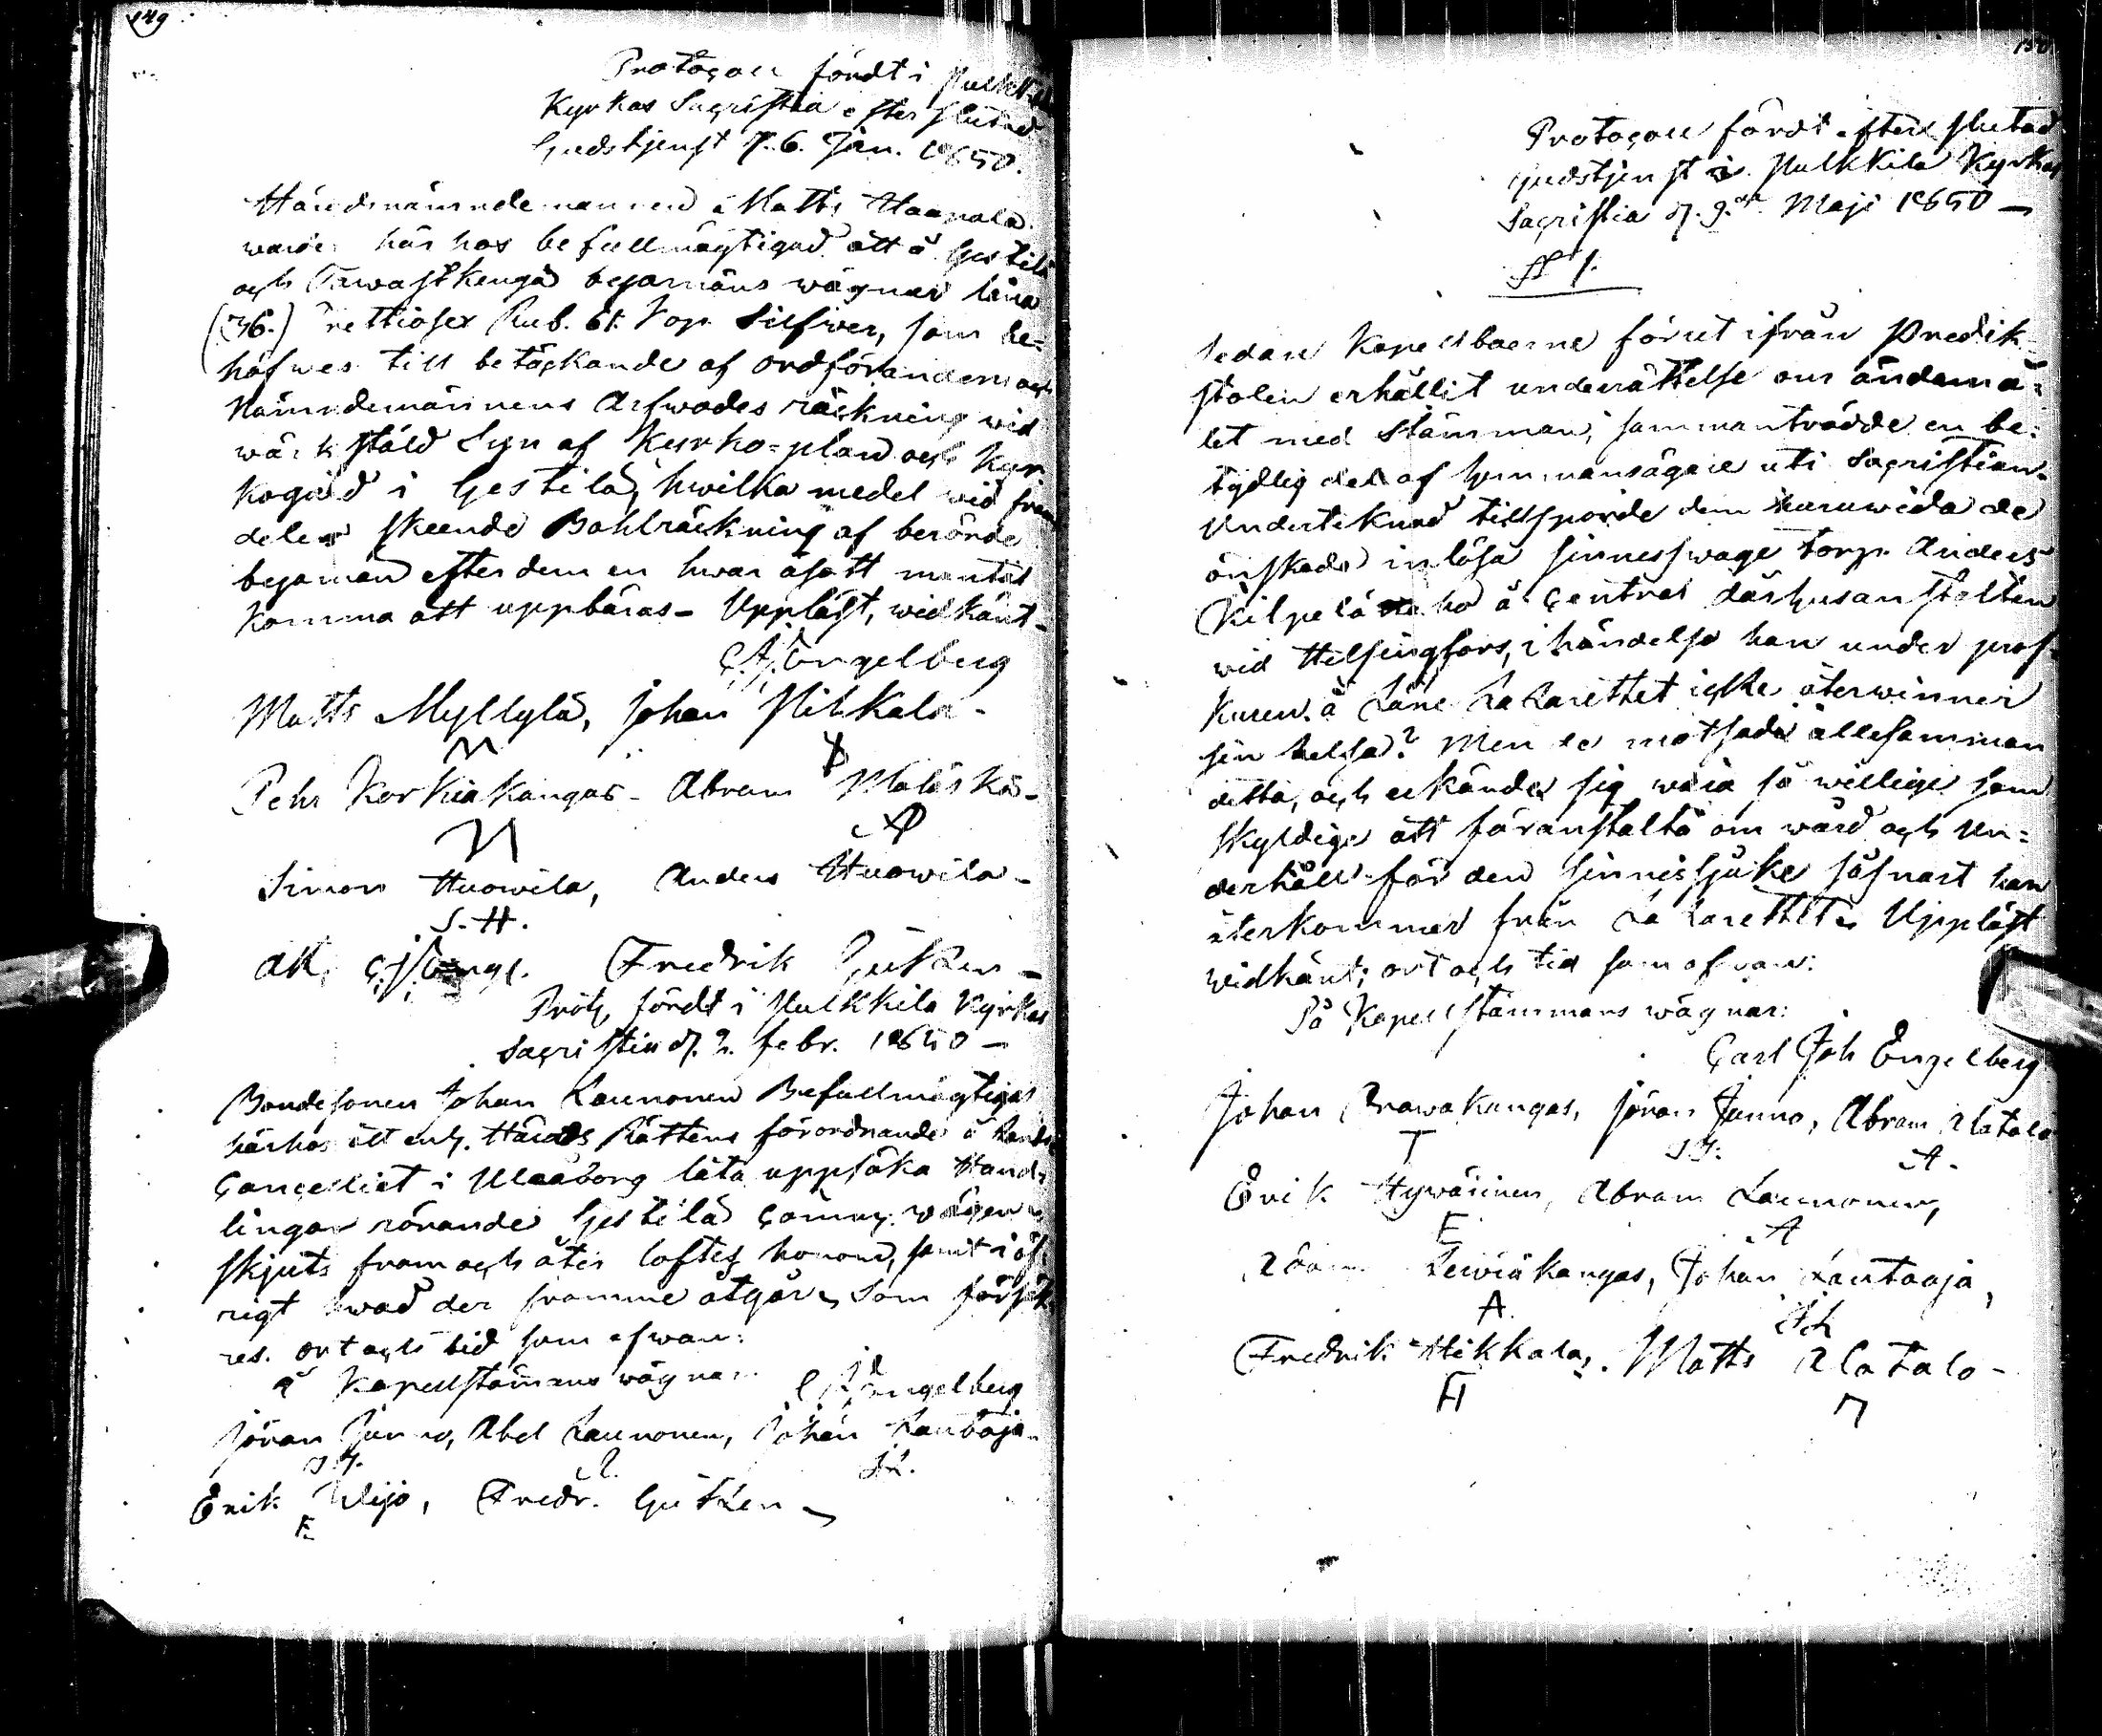 149
Protocoll fördt i Pulkkila
Kyrkas Sacristia efter slutad
Gudstjenst d. 6. Jan. 1850.
Häradsnämndemannen Matts Haapala
warde härhos befullmägtigad att å Gestilä
och Tawastkenga byamäns wägnar låna
(36.) trettiosex Rub. 61. Kop. Silfwer, som be-
höfwes till betäckande af ordförandens och
Nämndemännens Arfwodes räckning wid
wärkstäld Syn af Kyrko-plan och Kyr
kogård i Gestilä, hwilka medel wid fram
deles skeende Bohlräckning af berörde
byamän efter dem en hwar åsatt mantal
komma att uppbäras - Uppläst, widkänt -
C.J. Engelberg
Matts Myllylä, Johan Hikkala -
Pehr Korkiakangas - Abram Mäläskä -
Simon Huowila, Anders Huowila -
S. H.
att, C.J. Engel. Fredrik Gutzen -
Prot. fördt i Pulkkila Kyrkas
Sacristia d. 2. febr. 1850 -
Bondesonen Johan Launonen Befullmägtigas
härhos att enl. Härads Rättens förordnande å Lands
Cancelliet i Uleåborg låta uppsöka Hand-
lingar rörande Gestilä Commun. wägen
skjuts fram och åter loftes honom, samt i öf-
rigt hwad der framme åtgår, som försäk
res. ort och tid som ofwan:
å Kapellstämmans wägnar: C J Engelberg
Jöran Junno, Abel Launonen, Johan Lautaja
J. J. A. J L.
Erik Ulijo, Fredr. Gutzen -
E
150
Protocoll fördt efter slutad
gudstjenst i Pulkkila Kyrkas
Sacristia d. 9.de Maji 1850 -
§ 1.
Sedan Kapellboerne förut ifrån Predik-
stolen erhållit underrättelse om ändamå-
let med stämman, sammanträdde en be-
tydlig del af hemmansägare uti Sacristian.
Undertecknad tillsporde dem huruwida de
önskade inlösa sinnesswage torp. Anders
Kilpelänaho å Central dårhusanstalten
wid Helsingfors, i händelse han under prof-
kuren å Läne Lazarettet icke återwinner
sin helsa? Men de motsade allesamman
detta, och erkände sig wara så willige som
skyldige att föranstalta om wård och Un-
derhåll för den sinnessjuke såsnart han
återkommer från Lazarettet. Uppläst
widkänt; ort och tid som ofwan:
På Kapellstämmans wägnar:
Carl Joh Engelberg
Johan Prawakangas, Jöran Junno, Abram Alatalo
T J J. A.
Erik Hywärinen, Abram Launonen,
E A
Adam Leiwiäkangas, Johan Lautaaja,
A.
Fredrik Hikkala, Matts Alatalo -